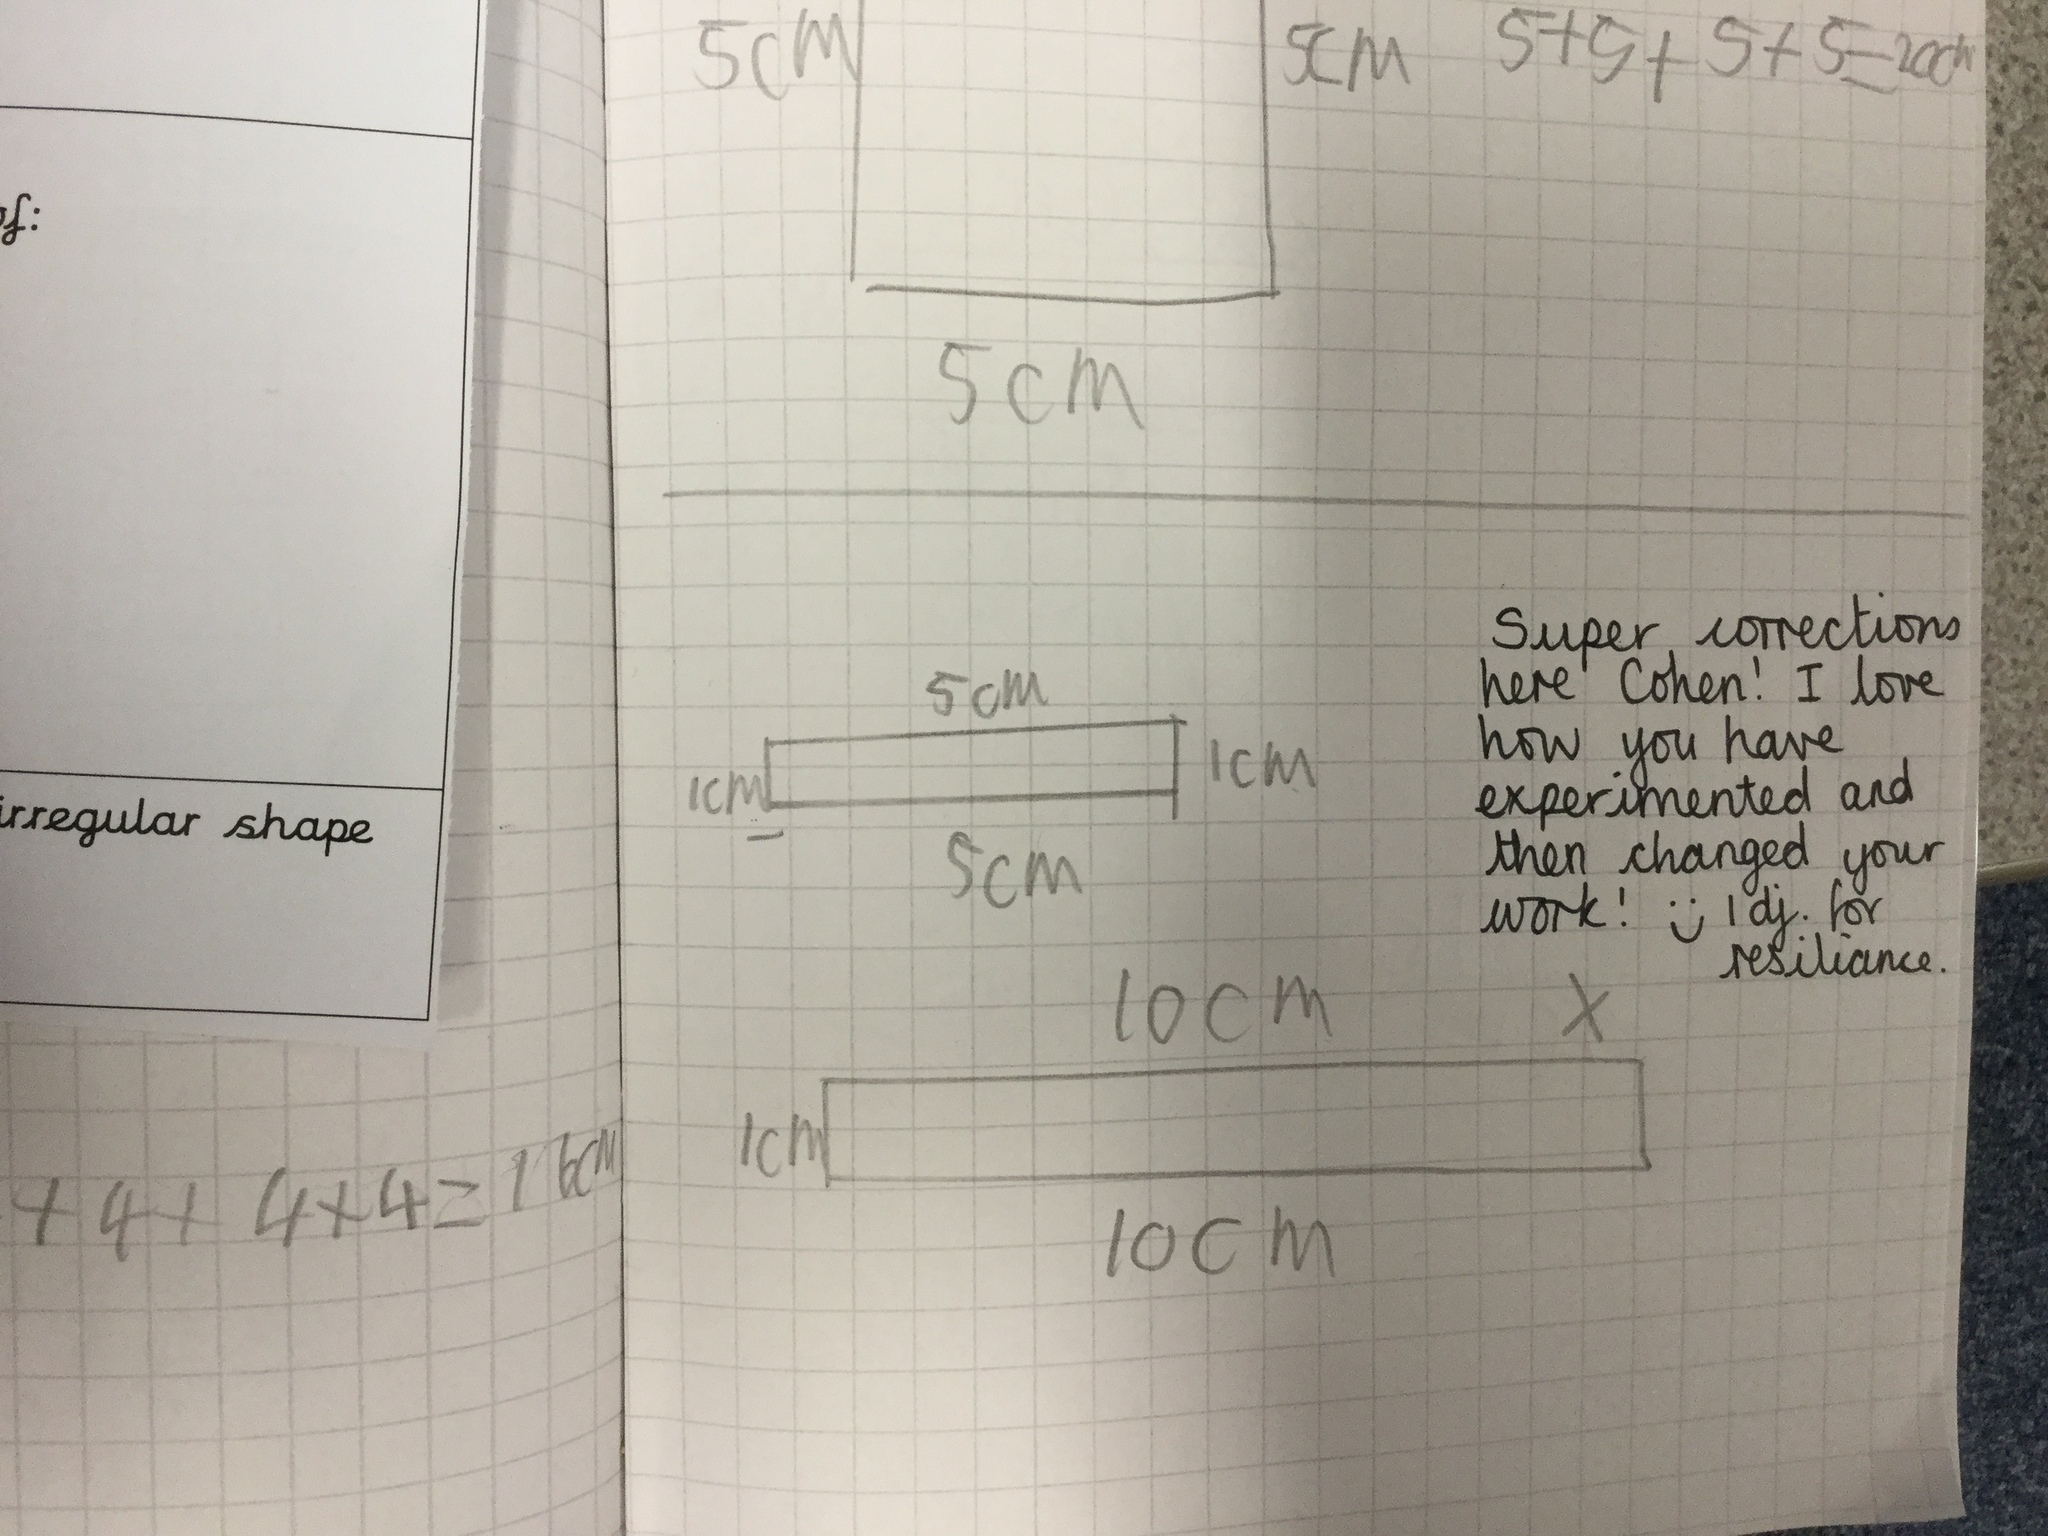 of:
irregular shape
+ 4 + 4 + 4 = 16cm
5cm
5cm
5+5+5+5=20cm
5cm
5cm
1cm
1cm
5cm
Super corrections
here Cohen! I love
how you have
experimented and
then changed your
work! 1 dj. for
resiliance.
10cm
X
1cm
10cm